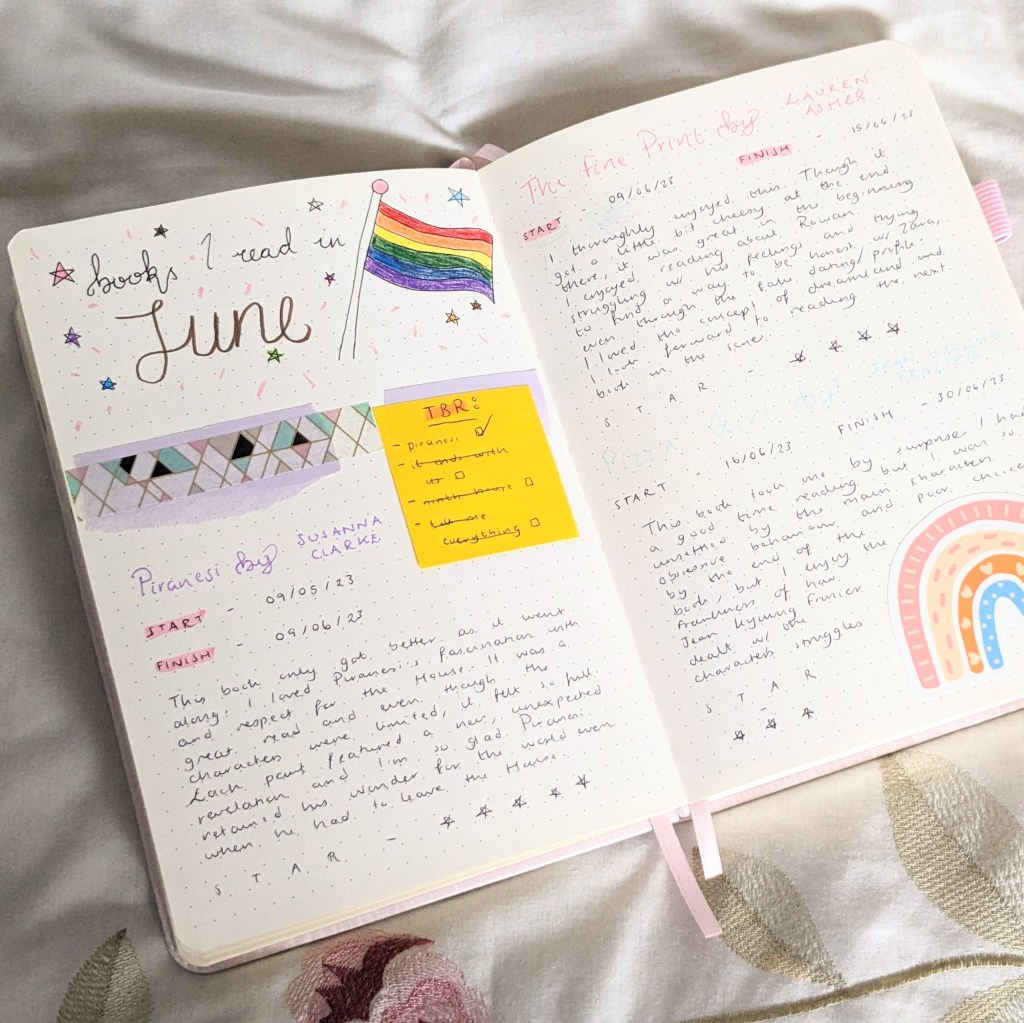 books I read in
June
TBR:
- piranesi
- it ends with
us
- ninth house
- tell me
everything
Piranesi by SUSANNA
CLARKE
START - 09/05/23
FINISH - 09/06/23
This book only got better as it went
along. I loved Piranesi's fascination with
and respect for the House. It was a
great read and even though the
characters were limited, it felt so full.
Each part featured a new, unexpected
revelation and I'm so glad Piranesi
retained his wonder for the world even
when he had to leave the House.
STAR -
The Fine Print by LAUREN
ASHER
START - 09/06/23 FINISH - 15/06/23
I thoroughly enjoyed this. Though it
got a little bit cheesy at the end
there, it was great in the beginning.
I enjoyed reading about Rowan
struggling w/ his feelings and trying
to find a way to be honest w/ Zara,
even through the fake dating profile.
I loved the concept of dreamland and
I look forward to reading the next
book in the series.
STAR -
Pizza Girl by JEAN KYOUNG
FRAZIER
START - 16/06/23 FINISH - 30/06/23
This book took me by surprise. I had
a good time reading but I was so
unsettled by the main characters
obsessive behaviour and poor choices
by the end of the
book, but I enjoy the
frankness of how
Jean Kyoung Frazier
dealt w/ the
characters struggles
STAR -